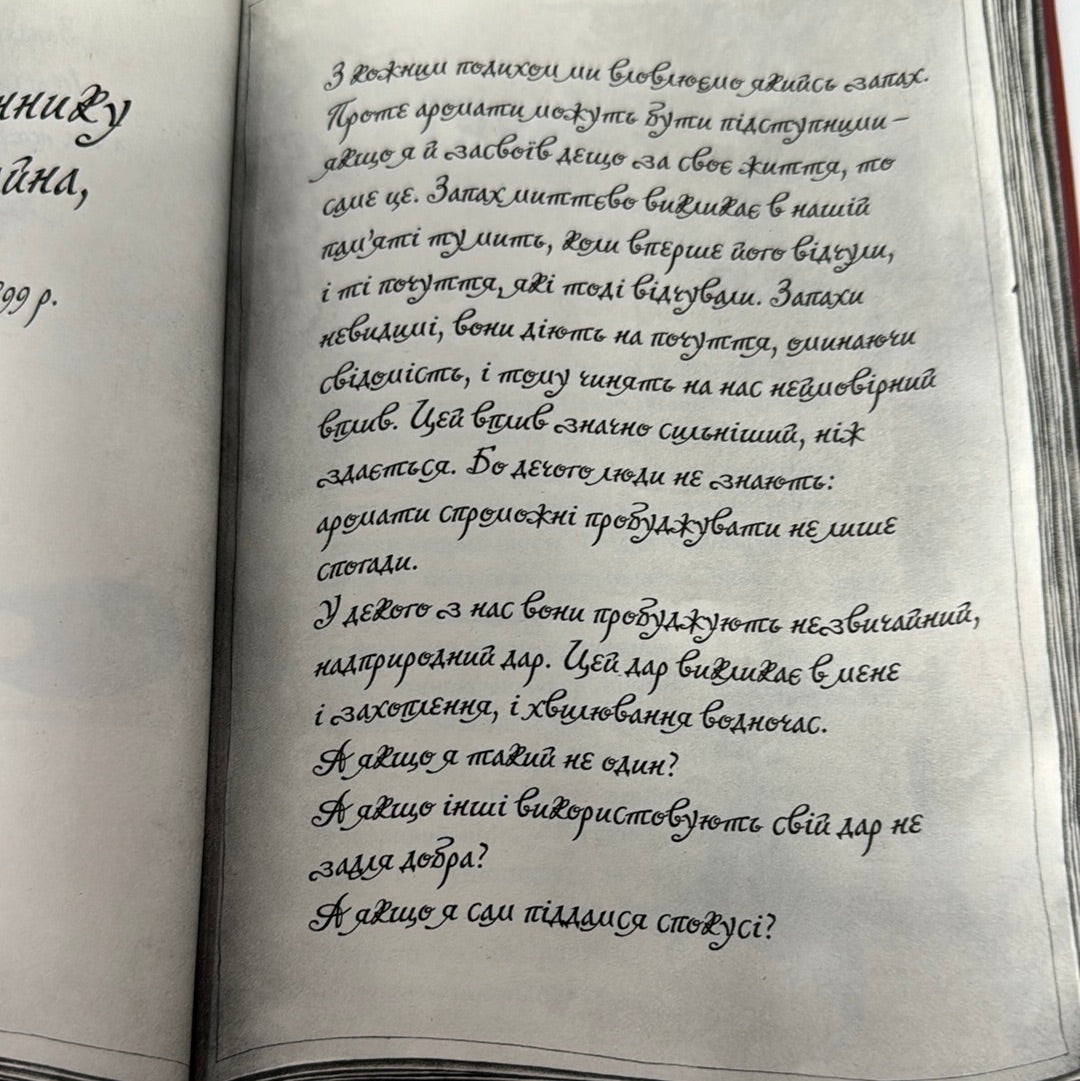 нику
йна,
899 р.
З кожним подихом ми вловлюємо якийсь запах.
Проте аромати можуть бути підступними —
якщо я й засвоїв дещо за своє життя, то
саме це. Запах миттєво викликає в нашій
пам'яті ту мить, коли вперше його відчули,
і ті почуття, які тоді відчували. Запахи
невидимі, вони діють на почуття, оминаючи
свідомість, і тому чинять на нас неймовірний
вплив. Цей вплив значно сильніший, ніж
здається. Бо дечого люди не знають:
аромати спроможні пробуджувати не лише
спогади.
У декого з нас вони пробуджують незвичайний,
надприродний дар. Цей дар викликає в мене
і захоплення, і хвилювання водночас.
А якщо я такий не один?
А якщо інші використовують свій дар не
задля добра?
А якщо я сам піддамся спокусі?